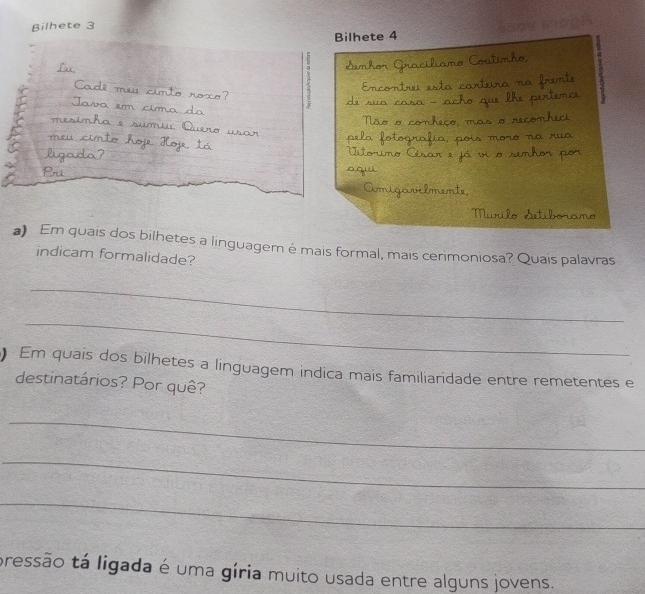 Bilhete 3
Lu,
Cadê meu cinto roxo?
Tava em cima da
mesinha e sumiu. Quero usar
meu cinto hoje. Hoje, tá
ligada?
Pri
Bilhete 4
Senhor Graciliano Coutinho,
Encontrei esta carteira na frente
de sua casa – acho que lhe pertence.
Não o conheço, mas o reconheci
pela fotografia, pois moro na rua
Vitorino César e já vi o senhor por
aqui.
Amigavelmente,
Murilo Setiborano
a) Em quais dos bilhetes a linguagem é mais formal, mais cerimoniosa? Quais palavras
indicam formalidade?
) Em quais dos bilhetes a linguagem indica mais familiaridade entre remetentes e
destinatários? Por quê?
pressão tá ligada é uma gíria muito usada entre alguns jovens.